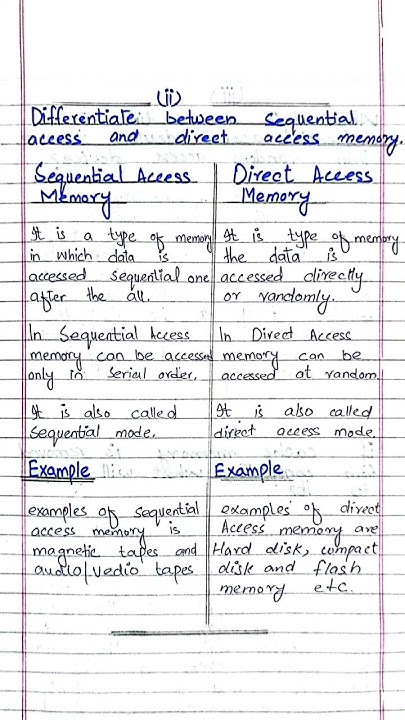 (ii)
Differentiate between Sequential
access and direct access memory.
Sequential Access
Memory
It is a type of memory
in which data is
accessed sequential one
after the all.
In Sequential Access
memory can be accessed
only in Serial order.
It is also called
Sequential mode.
Example
examples of sequential
access memory is
magnetic tapes and
audio/vedio tapes
Direct Access
Memory
It is type of memory
the data is
accessed directly
or randomly.
In Direct Access
memory can be
accessed at random.
It is also called
direct access mode.
Example
examples of direct
Access memory are
Hard disk, compact
disk and flash
memory etc.